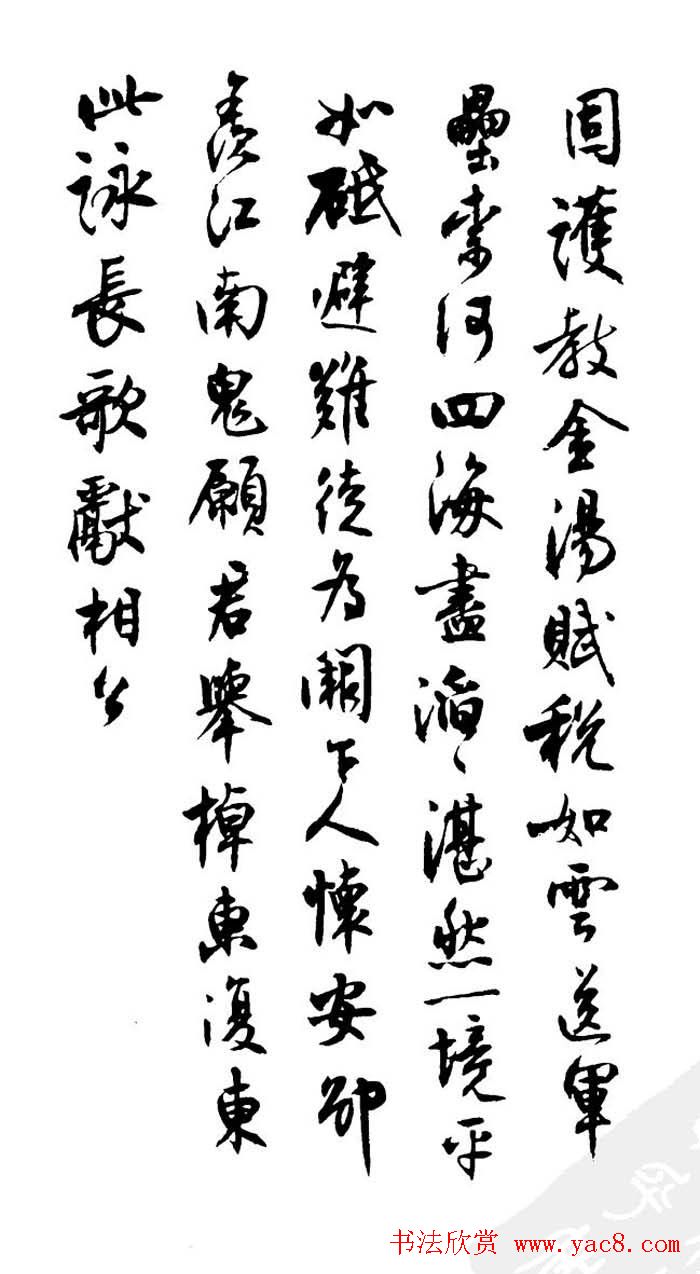 固護教金湯賦税如雲送軍
壘柰何四海盡滔〻湛然一境平
如砥避難徒為闕下人懷安卻
羨江南鬼願君舉棹東復東
此詠長歌獻相公
书法欣赏 www.yac8.com